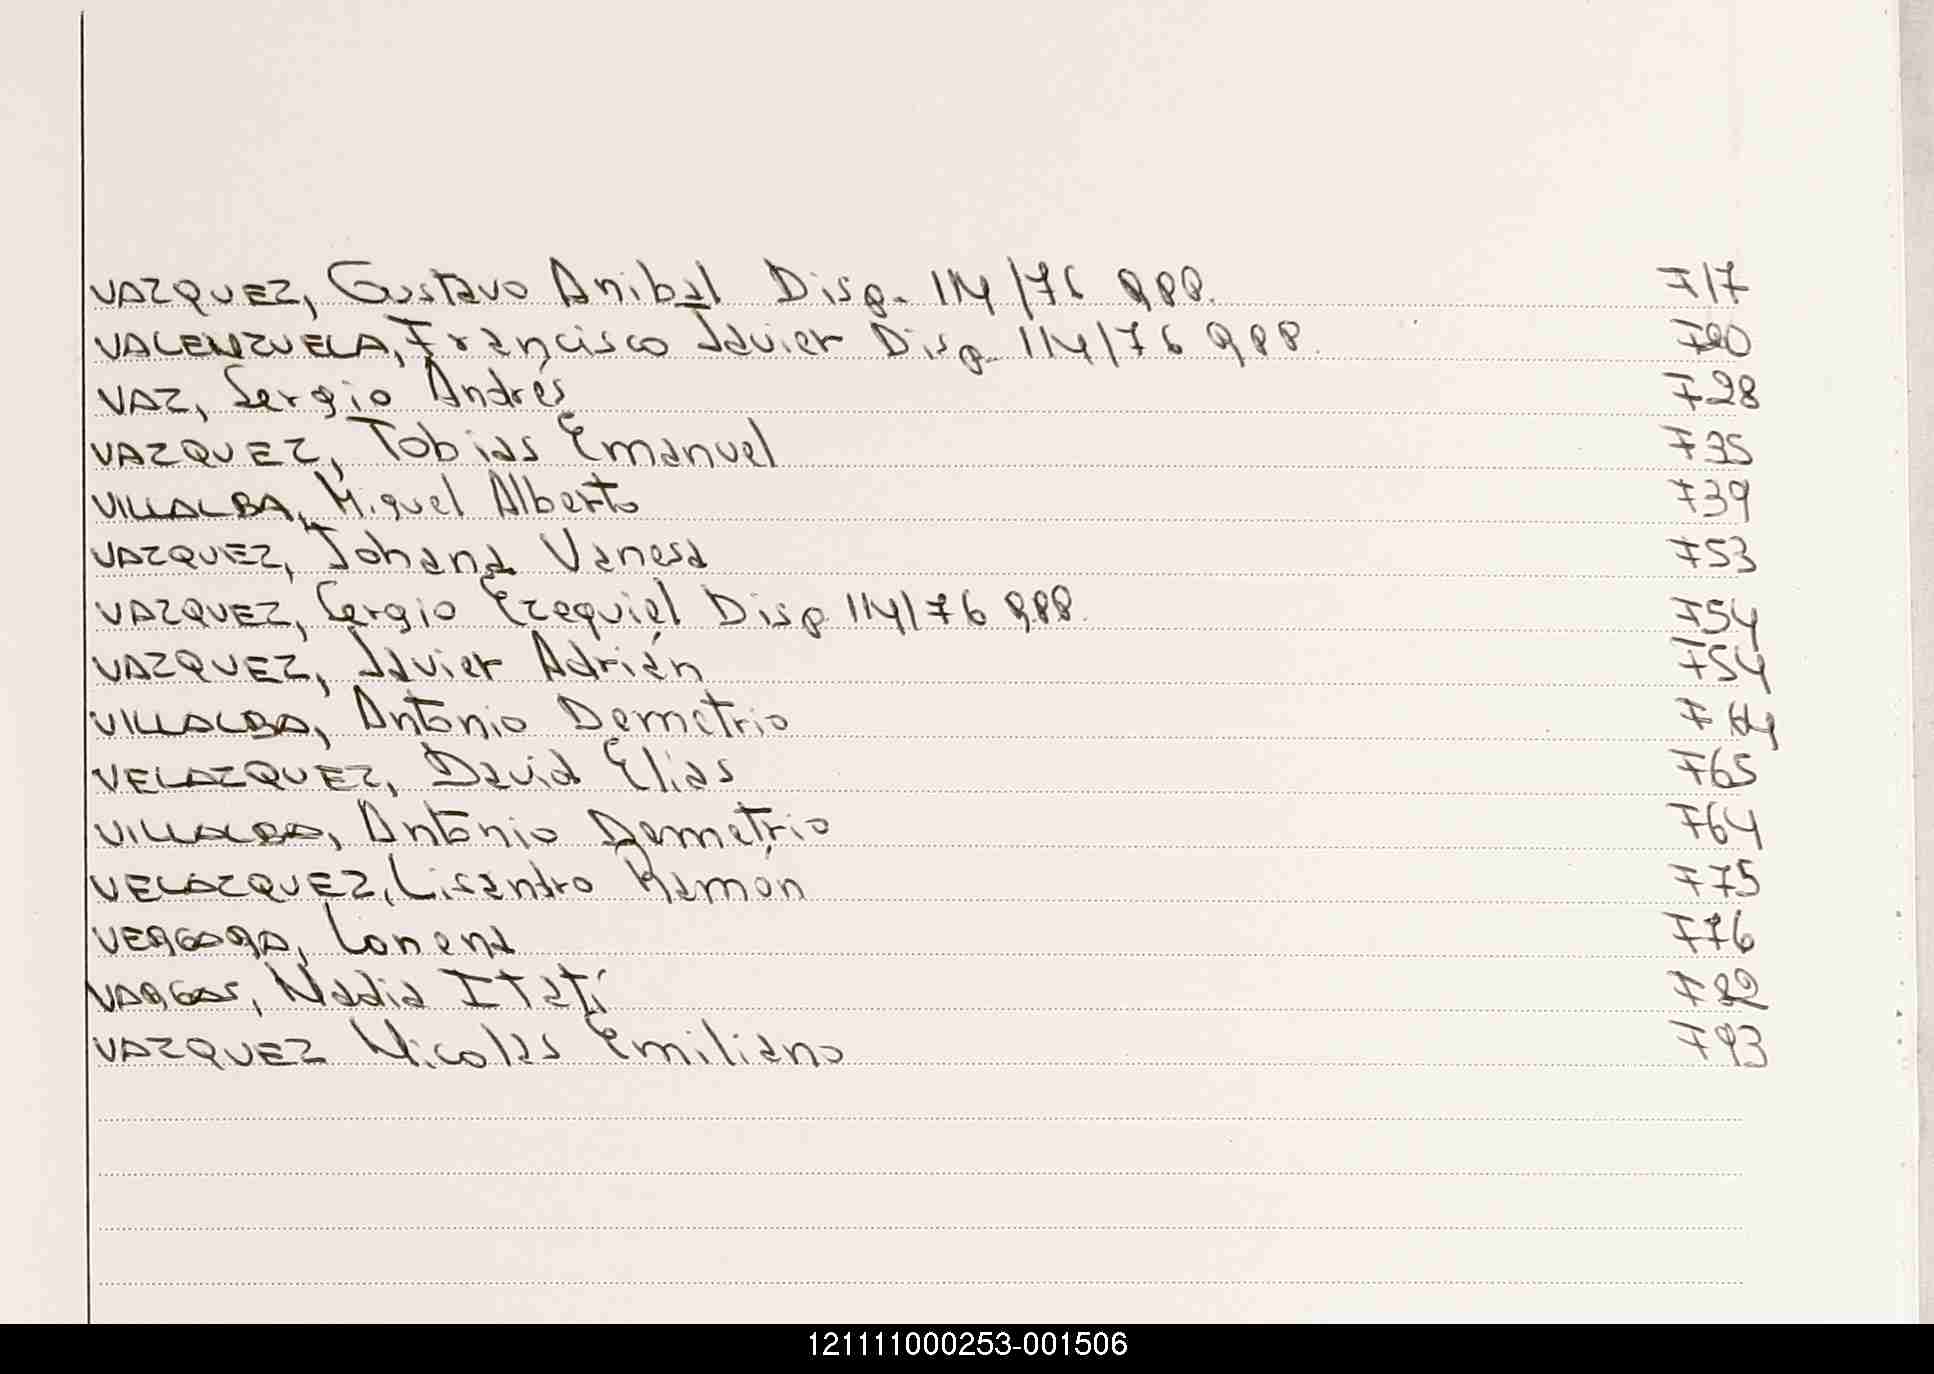 VAZQUEZ, Gustavo Anibal Disp. 114/76 RPP. 717
VALENZUELA, Francisco Javier Disp. 114/76 RPP. 720
VAZ, Sergio Andrés 728
VAZQUEZ, Tobias Emanuel 735
VILLALBA, Miguel Alberto 739
VAZQUEZ, Johana Vanesa 753
VAZQUEZ, Sergio Ezequiel Disp. 114/76 RPP. 754
VAZQUEZ, Javier Adrián 754
VILLALBA, Antonio Demetrio 764
VELAZQUEZ, David Elias 765
VILLALBA, Antonio Demetrio 764
VELAZQUEZ, Lisandro Ramón 775
VERGARA, Lorena 776
VARGAS, Nadia Itatí
VAZQUEZ Nicolas Emiliano 793
121111000253-001506